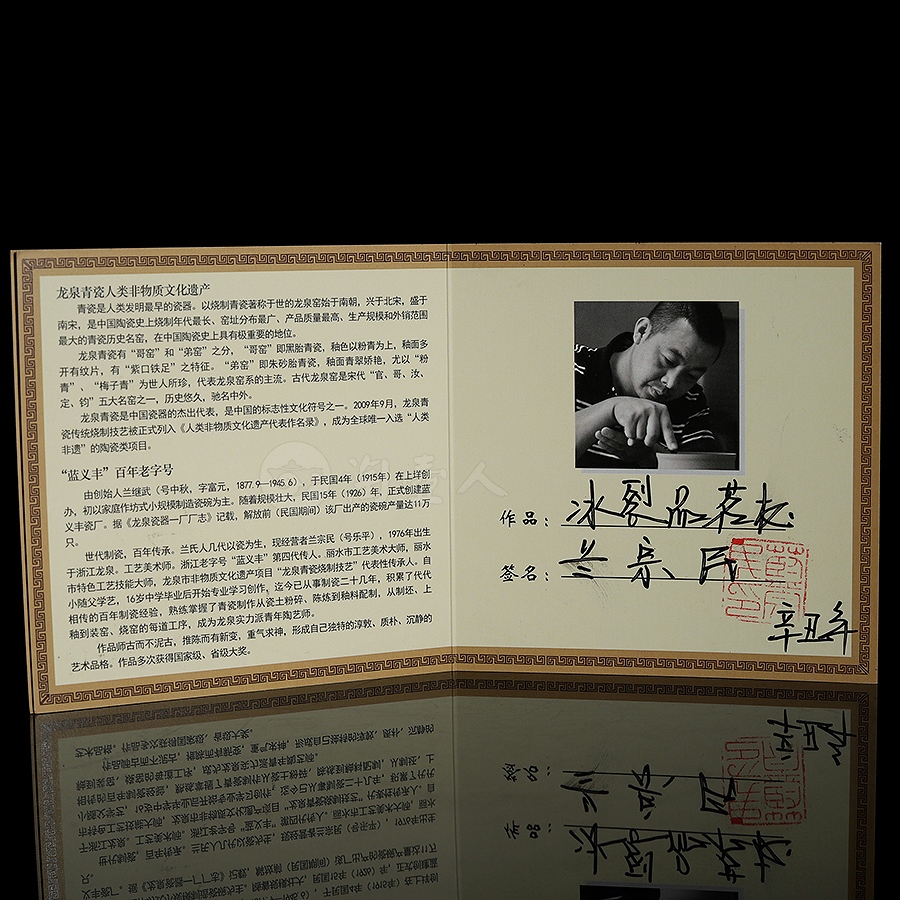 龙泉青瓷人类非物质文化遗产
青瓷是人类发明最早的瓷器。以烧制青瓷著称于世的龙泉窑始于南朝，兴于北宋，盛于
南宋，是中国陶瓷史上烧制年代最长、窑址分布最广、产品质量最高、生产规模和外销范围
最大的青瓷历史名窑，在中国陶瓷史上具有极重要的地位。
龙泉青瓷有“哥窑”和“弟窑”之分，“哥窑”即黑胎青瓷，釉色以粉青为上，釉面多
开有纹片，有“紫口铁足”之特征。“弟窑”即朱砂胎青瓷，釉面青翠娇艳，尤以“粉
青”、“梅子青”为世人所珍，代表龙泉窑系的主流。古代龙泉窑是宋代“官、哥、汝、
定、钧”五大名窑之一，历史悠久，驰名中外。
龙泉青瓷是中国瓷器的杰出代表，是中国的标志性文化符号之一。2009年9月，龙泉青
瓷传统烧制技艺被正式列入《人类非物质文化遗产代表作名录》，成为全球唯一入选“人类
非遗”的陶瓷类项目。
“蓝义丰”百年老字号
由创始人兰继武（号中秋，字富元，1877.9—1945.6），于民国4年（1915年）在上垟创
办，初以家庭作坊式小规模制造瓷碗为主。随着规模壮大，民国15年（1926）年，正式创建蓝
义丰瓷厂。据《龙泉瓷器一厂厂志》记载，解放前（民国期间）该厂出产的瓷碗产量达11万
只。
世代制瓷，百年传承。兰氏人几代以瓷为生，现经营者兰宗民（号乐平），1976年出生
于浙江龙泉。工艺美术师。浙江老字号“蓝义丰”第四代传人。丽水市工艺美术大师，丽水
市特色工艺技能大师，龙泉市非物质文化遗产项目“龙泉青瓷烧制技艺”代表性传承人。自
小随父学艺，16岁中学毕业后开始专业学习创作，迄今已从事制瓷二十几年，积累了代代
相传的百年制瓷经验，熟练掌握了青瓷制作从瓷土粉碎、陈炼到釉料配制，从制坯、上
釉到装窑、烧窑的每道工序，成为龙泉实力派青年陶艺师。
作品师古而不泥古，推陈而有新变，重气求神，形成自己独特的淳敦、质朴、沉静的
艺术品格。作品多次获得国家级、省级大奖。
作品：冰裂品茗杯
签名：兰宗民
辛丑年